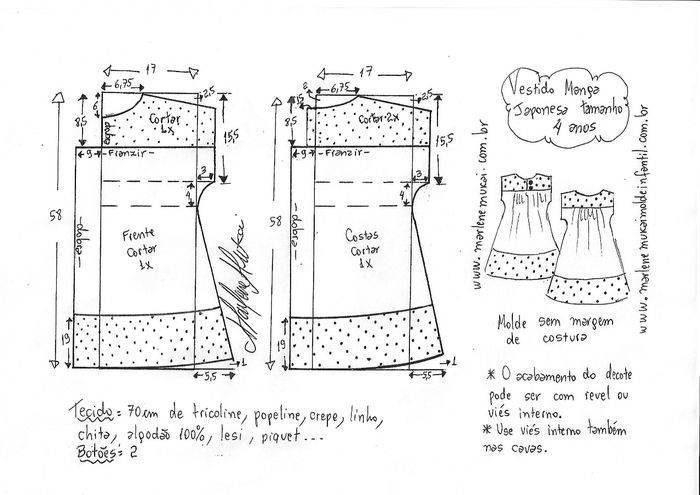 17
6,75
2,5
6
8,5
dobra
Cortar
1x
15,5
9
-Franzir-
3
4
58
-dobra-
Frente
Cortar
1x
19
1
5,5
Marlene Mukai
17
2
6,75
2,5
1,5
8,5
Cortar 2x
15,5
9
-Franzir-
3
4
58
-dobra-
Costas
Cortar
1x
19
1
5,5
Vestido Manga
Japonesa tamanho
4 anos
www.marlenemukai.com.br
www.marlenemukaimoldeinfantil.com.br
Molde sem margem
de costura
* O acabamento do decote
pode ser com revel ou
viés interno.
* Use viés interno também
nas cavas.
Tecido = 70cm de tricoline, popeline, crepe, linho,
chita, algodão 100%, lesi, piquet...
Botões: 2